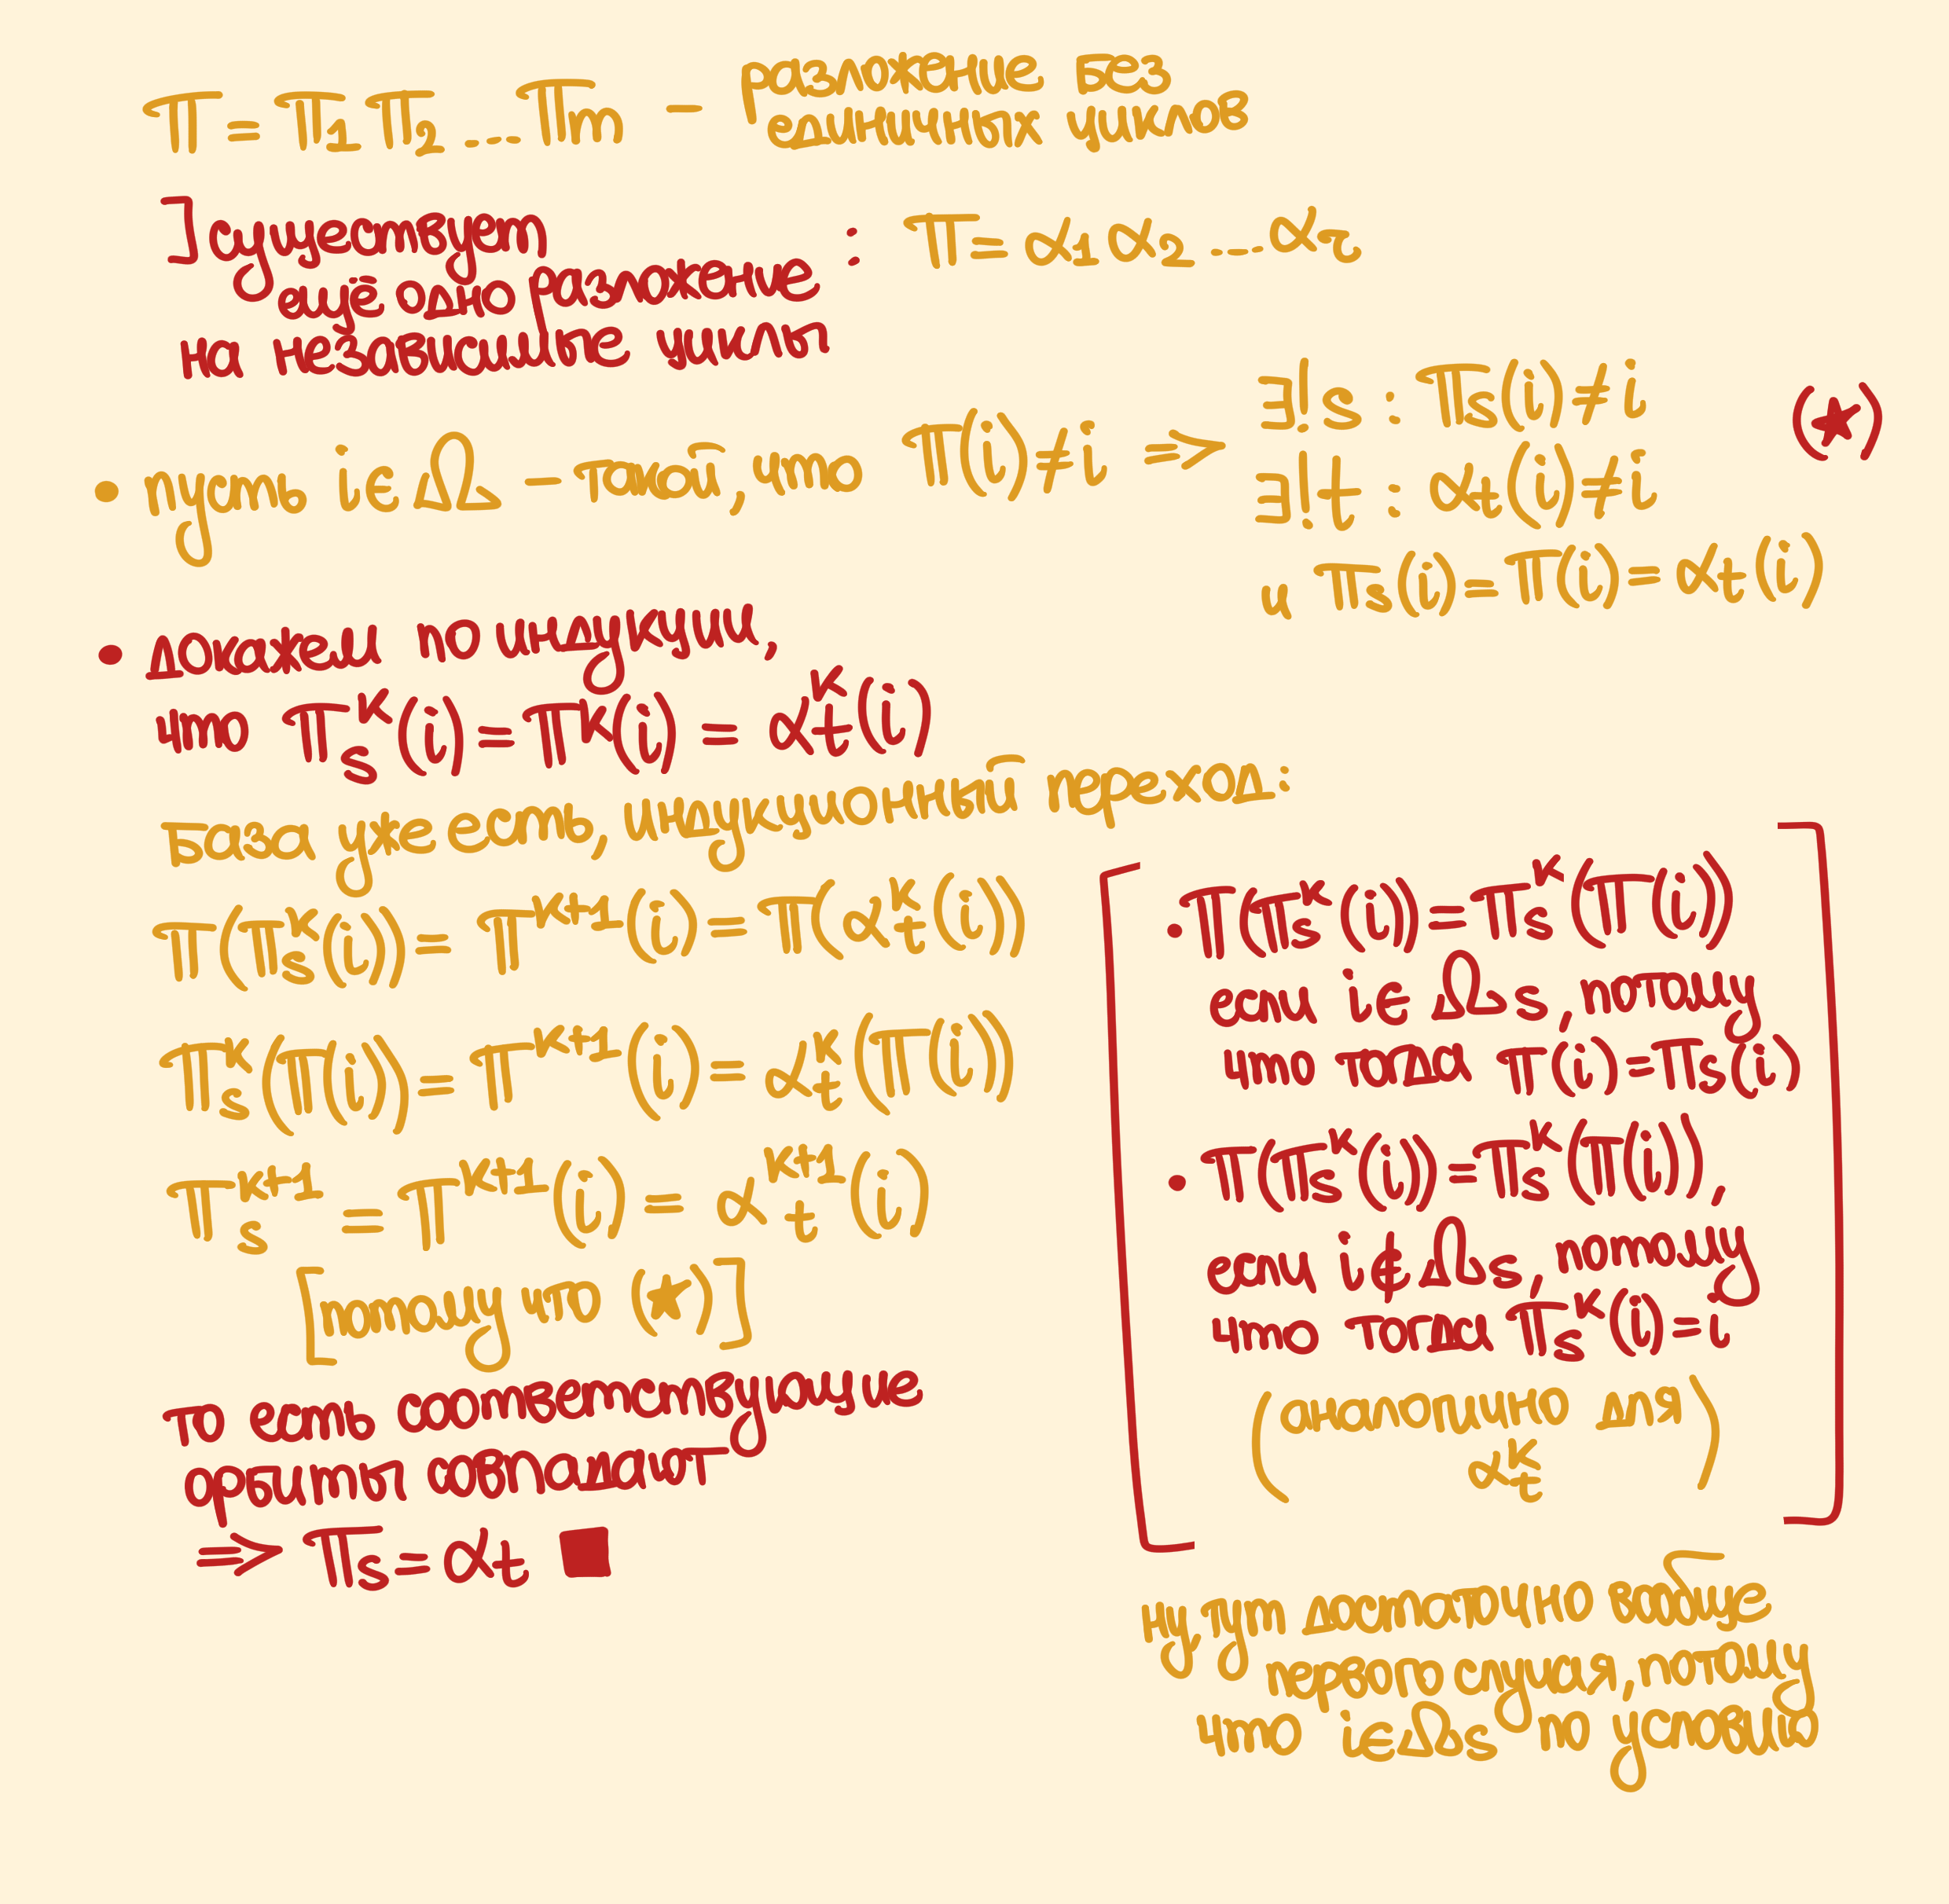 π = π₁ π₂ ... πₘ – разложение без
единичных циклов
] существует
ещё одно разложение
на независимые циклы : π = α₁ α₂ ... α_r
• пусть i ∈ Ω – такой, что π(i) ≠ i ⇒
∃! s : πₛ(i) ≠ i
∃! t : αₜ(i) ≠ i
и πₛ(i) = π(i) = αₜ(i)
(★)
• докажем по индукции,
что πₛᵏ(i) = πᵏ(i) = αₜᵏ(i)
База уже есть, индукционный переход:
π(πₛᵏ(i)) = πᵏ⁺¹(i) = π(αₜᵏ(i))
πₛᵏ(π(i)) = πᵏ⁺¹(i) = αₜᵏ(π(i))
πₛᵏ⁺¹ = πᵏ⁺¹(i) = αₜᵏ⁺¹(i)
[потому что (★)]
то есть соответствующие
орбиты совпадают
⇒ πₛ = αₜ ■
• π(πₛᵏ(i)) = πₛᵏ(π(i))
если i ∈ Ωₛ, потому
что тогда π(i) = πₛ(i)
• π(πₛᵏ(i)) = πₛᵏ(π(i)),
если i ∉ Ωₛ, потому
что тогда πₛᵏ(i) = i
(аналогично для
αₜᵏ)
ну тут достаточно вообще
первого случая, потому
что i ∈ Ωₛ по условию